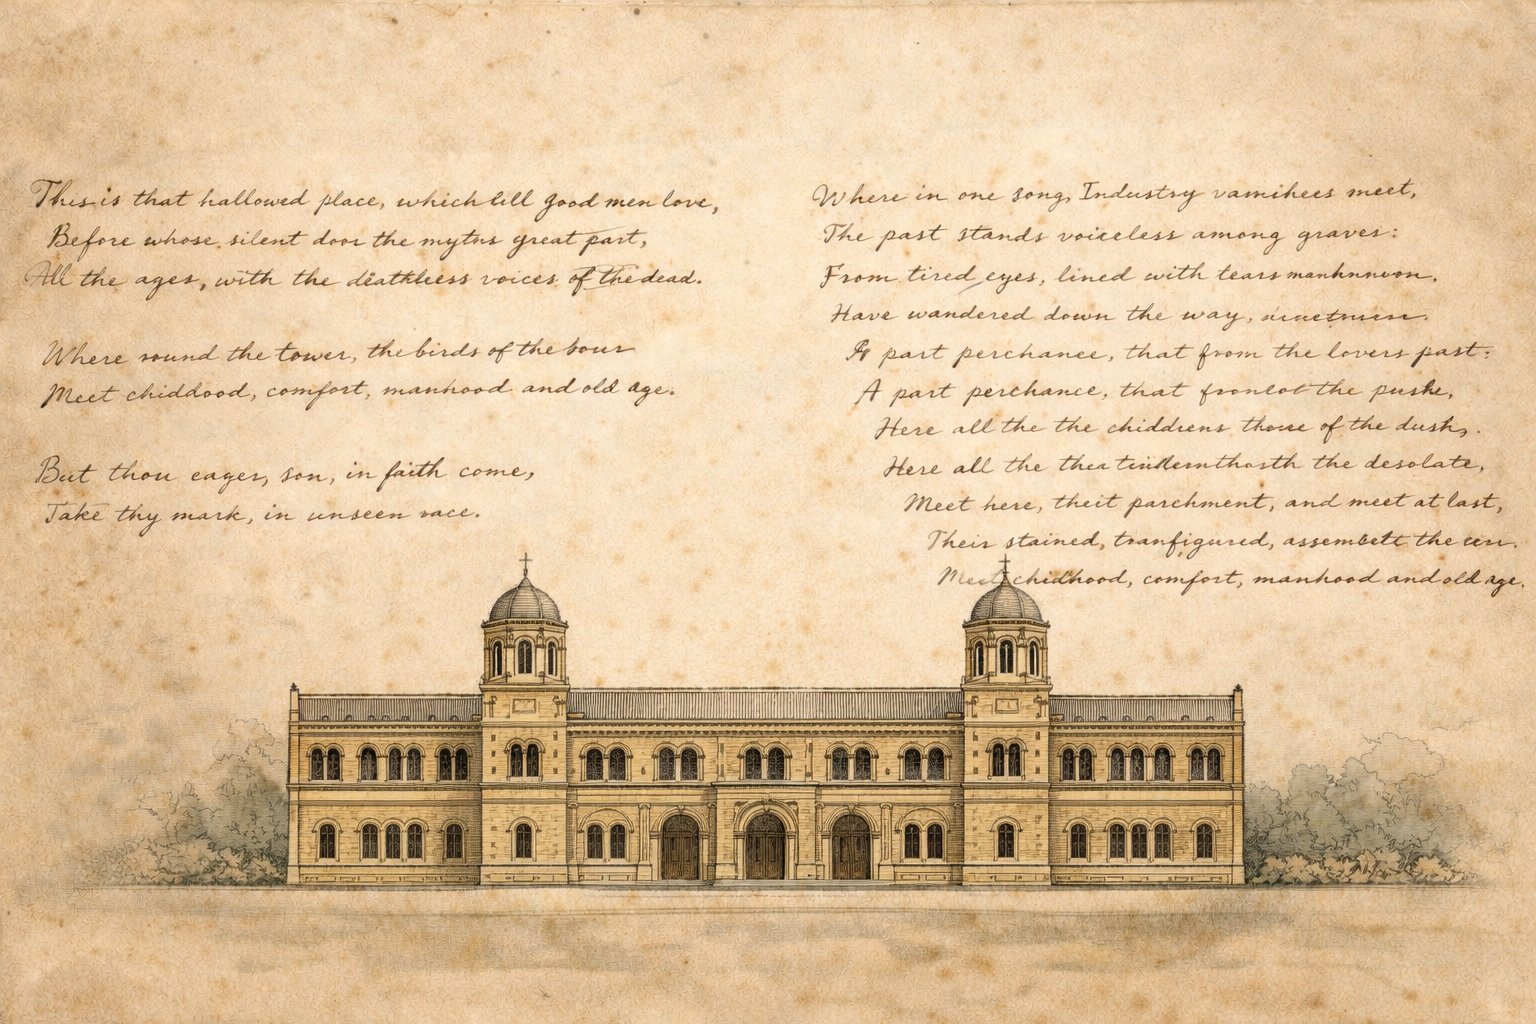 This is that hallowed place, which lell good men love,
Before whose silent door the myths great part,
All the ages, with the deathless voices of the dead.
Where round the tower, the birds of the
Meet chiddood, comfort, manhood and old age.
But thou eager, son, in faith come,
Take thy mark, in unseen race.
Where in one song, Industry vamihees meet,
The past stands voiceless among graves:
From tired eyes, lined with tears
Have wandered down the way,
part perchance, that from the lovers past:
A part perchance, that the
Here all the the chiddrens of the dush,
Here all the the desolate,
Meet here, theit parchment, and meet at last,
Their stained, tranfigured, the
Meet chidhood, comfort, manhood and old age.